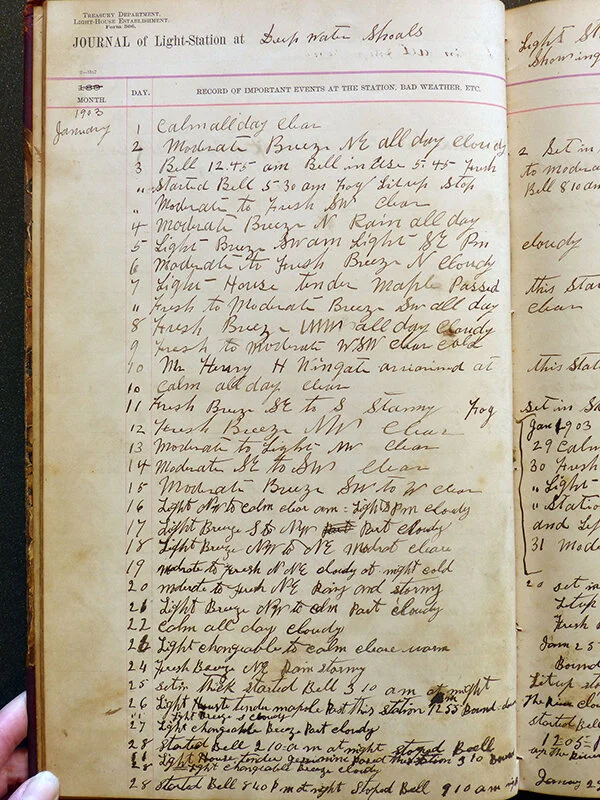 TREASURY DEPARTMENT,
LIGHT-HOUSE ESTABLISHMENT.
Form 306.
JOURNAL of Light-Station at Deep Water Shoals
189
MONTH. DAY. RECORD OF IMPORTANT EVENTS AT THE STATION, BAD WEATHER, ETC.
1903
January 1 Calm all day clear
2 Moderate Breeze NE all day cloudy
3 Bell 12.45 am Bell in use 5.45 Fresh
" Started Bell 5 30 am Fog Lit up Stop
" Moderate to Fresh SW clear
4 Moderate Breeze N Rain all day
5 Light Breeze SW am Light SE Pm
6 Moderate to Fresh Breeze N cloudy
7 Light-House tender Maple Passed
" Fresh to Moderate Breeze SW all day
8 Fresh Breeze all day cloudy
9 Fresh to moderate WSW clear cold
10 Mr Henry H Wingate at
10 calm all day clear
11 Fresh Breeze SE to S Stormy Fog
12 Fresh Breeze NW Clear
13 Moderate to Light NW Clear
14 Moderate SE to SW Clear
15 Moderate Breeze SW to W clear
16 Light NW to calm clear am = Light Pm cloudy
17 Light Breeze S to NW Part cloudy
18 Light Breeze NW to NE
19 modrate to Fresh N cloudy at night cold
20 moderate to Fresh NE Rainy and stormy
21 Light Breeze NW to calm Part cloudy
22 Calm all day cloudy
Light changeable to calm cleare warm
24 Fresh Breeze NE stormy
25 set in thick started Bell 3 10 am at night
26 Light House tender Past this station 12 55 Bound
" Light Breeze S cloudy
27 Light changeable Breeze Part cloudy
28 Started Bell 2 10 a m at night stoped Bell
Light House tender Past this station 3 10 Bound
28 Light changeable Breeze cloudy
28 Started Bell 8 40 P m at night Stoped Bell 9 10 a m
Light St
Showing
2 Set in
to modera
Bell 8 10 am
cloudy
this Sta
clear
this Stat
Set in S
Jan 1903
29 Calm
30 Fresh
" Light-
" Statio
and Lig
31 Mode
20 set in
Lit up
Fresh
Jan 25
Bound
Lit up sto
The River clou
started Bell
12 05 =
up the River
January 29